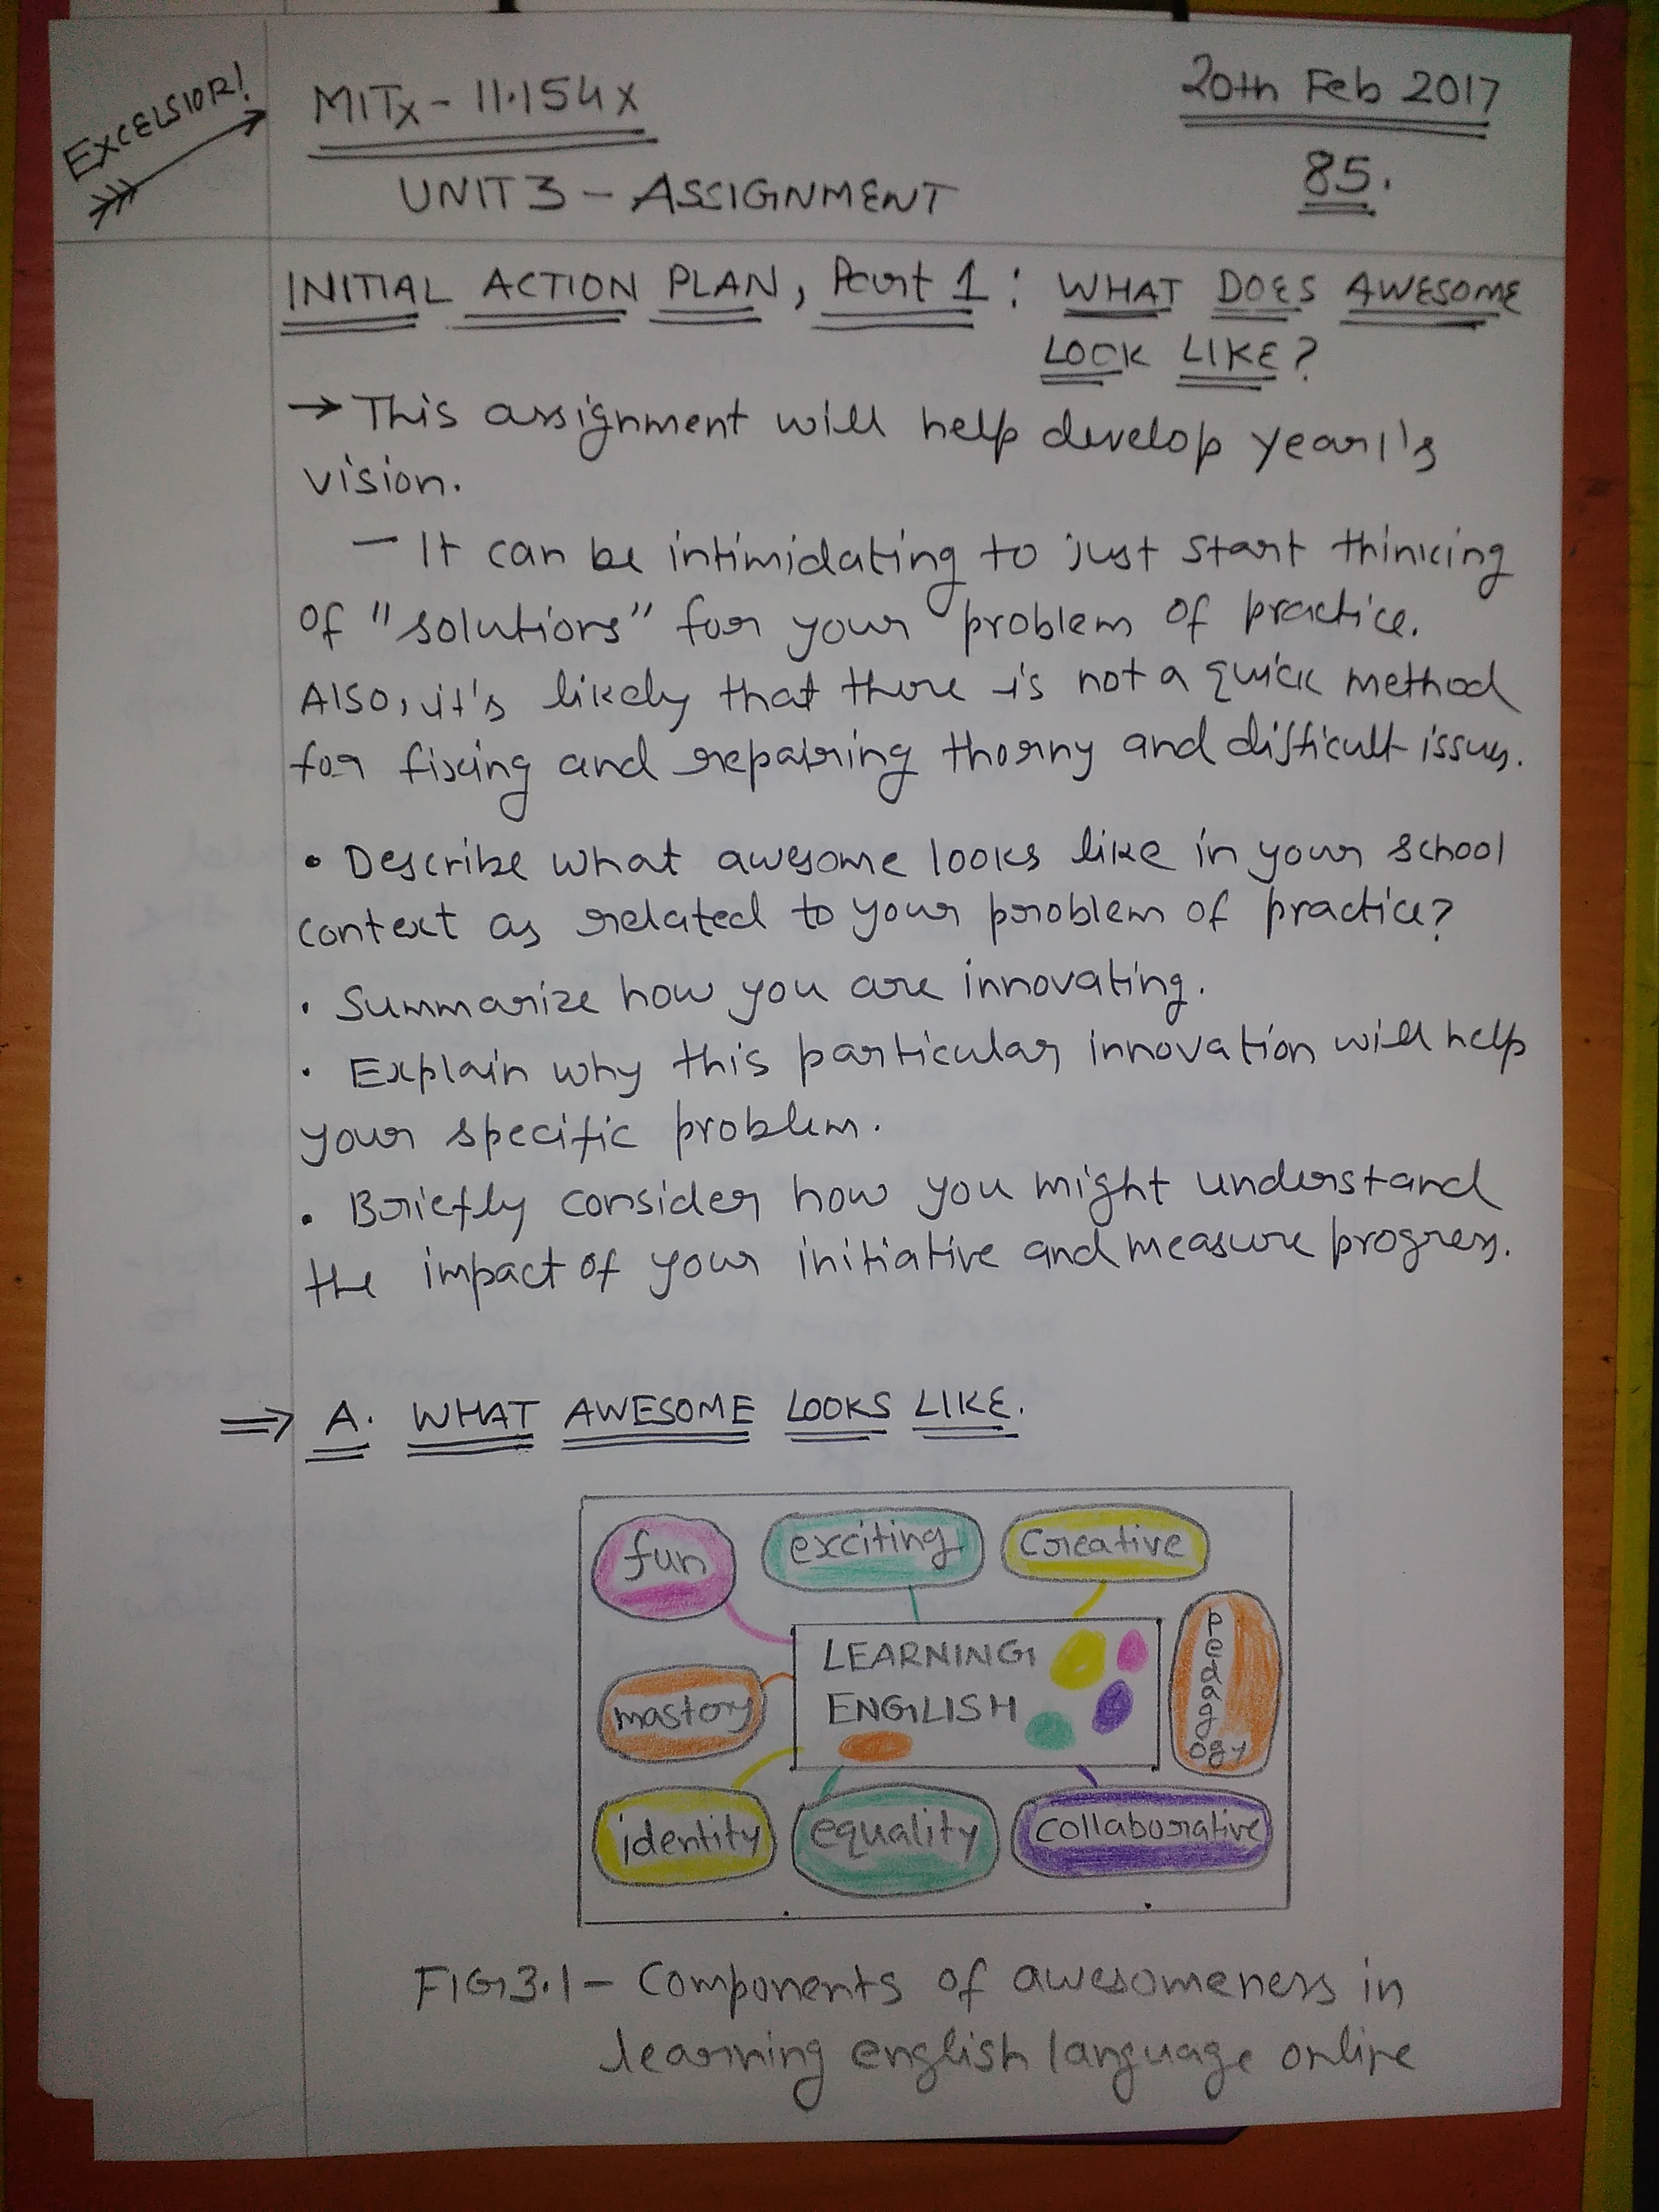 EXCELSIOR!
MITx - 11.154x
20th Feb 2017
UNIT 3 - ASSIGNMENT
85.
INITIAL ACTION PLAN, Part 1 : WHAT DOES AWESOME
LOOK LIKE?
→ This assignment will help develop year1's
vision.
— It can be intimidating to just start thinking
of "solutions" for your problem of practice.
Also, it's likely that there is not a quick method
for fixing and repairing thorny and difficult issues.
• Describe what awesome looks like in your school
context as related to your problem of practice?
• Summarize how you are innovating.
• Explain why this particular innovation will help
your specific problem.
• Briefly consider how you might understand
the impact of your initiative and measure progress.
⇒ A. WHAT AWESOME LOOKS LIKE.
fun
exciting
creative
LEARNING
ENGLISH
pedagogy
mastory
identity
equality
collaborative
FIG 3.1 - Components of awesomeness in
learning english language online